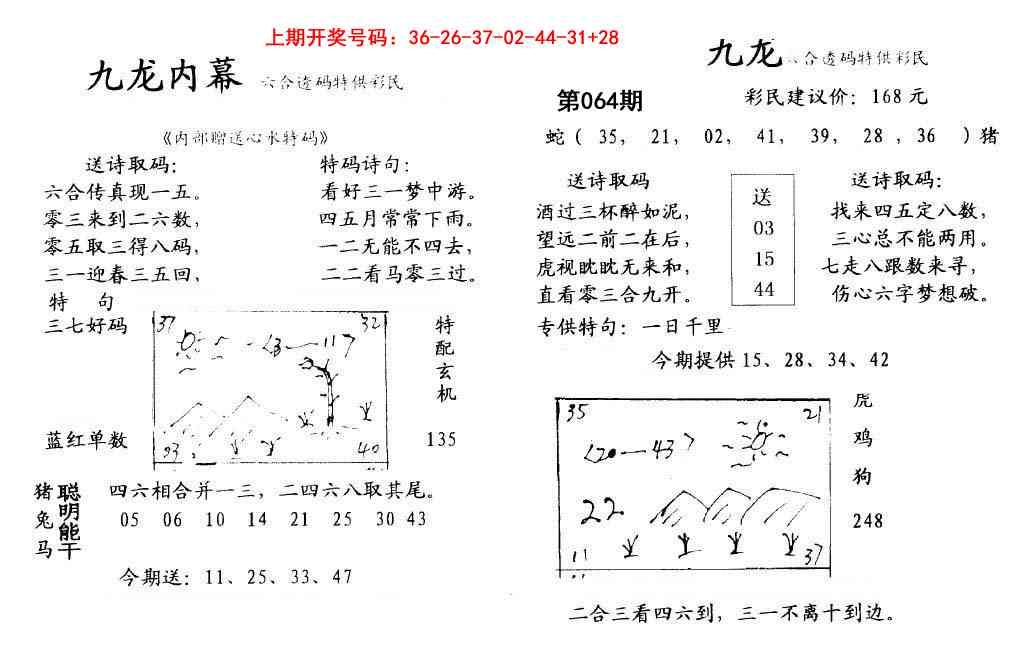 上期开奖号码：36-26-37-02-44-31+28
九龙内幕 六合透码特供彩民
《内部赠送心水特码》
送诗取码：
六合传真现一五。
零三来到二六数，
零五取三得八码，
三一迎春三五回，
特 句
三七好码
蓝红单数
特码诗句：
看好三一梦中游。
四五月常常下雨。
一二无能不四去，
二二看马零三过。
37
32
<3—11>
03
40
特配玄机
135
猪兔马
聪明能干
四六相合并一三，二四六八取其尾。
05 06 10 14 21 25 30 43
今期送：11、25、33、47
九龙 六合透码特供彩民
第064期
彩民建议价：168元
蛇（35，21，02，41，39，28，36 ）猪
送诗取码
酒过三杯醉如泥，
望远二前二在后，
虎视眈眈无来和，
直看零三合九开。
送
03
15
44
送诗取码：
找来四五定八数，
三心总不能两用。
七走八跟数来寻，
伤心六字梦想破。
专供特句：一日千里
今期提供15、28、34、42
35
21
<20—43>
22
11
37
虎
鸡
狗
248
二合三看四六到，三一不离十到边。